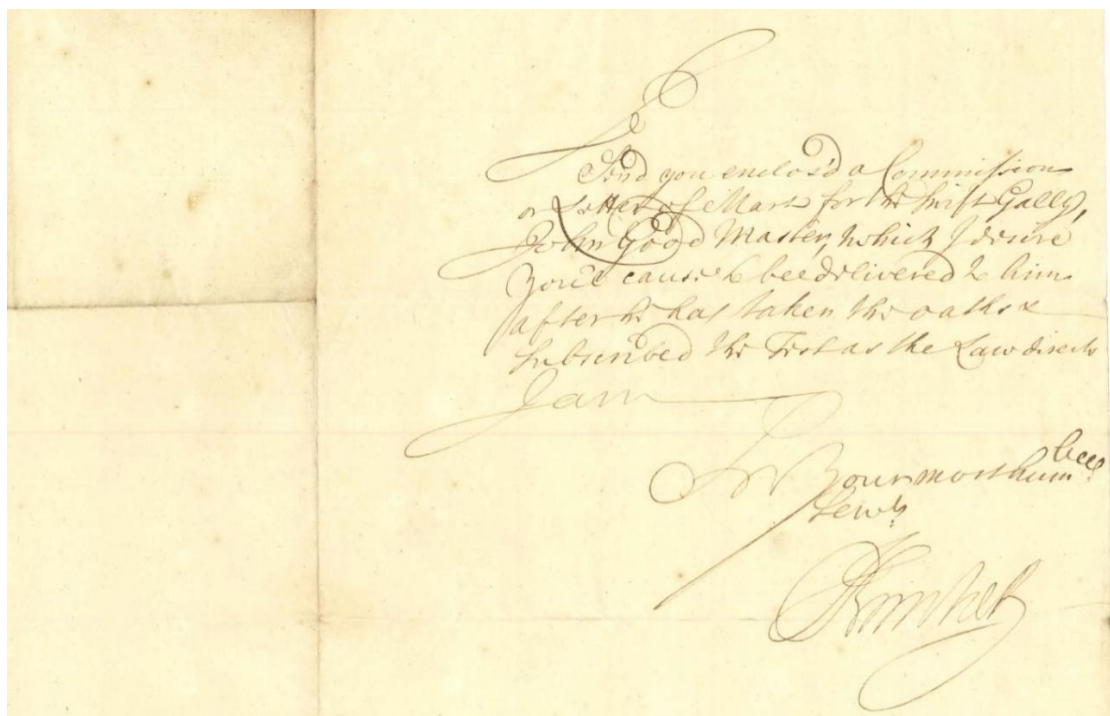 Sr
I send you enclos'd a Commission
or Letter of Mart for the Swift Gally,
John Good Master, which I desire
you'l cause to bee delivered to him
after he has taken the oaths &
subscribed the Test as the Law directs
I am
Sr Your most humble
Servt